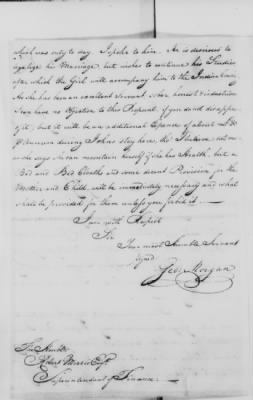 which was only to day. I spoke to him. He is desirous to
his Marriage, but wishes to continue his Studies
after which the Girl will accompany him to the Indian
As she has been an excellent Servant, sober honest & industrious
I can have no objection to this Proposal if you dont disapprove
of it; but it will be an additional Expence of about
Annum during Johns stay here, the
as she says she can maintain herself if she has Health, but a
Bed and Bed Cloaths and some decent Provision for the
Mother and Child, will be immediately necessary and what
shall be provided for them unless you forbid it. —
I am with Respect
Sir
Your most Humble Servant
signed
Geo. Morgan
The Honble
Robert Morris Esqr.
Superintendant of Finance.